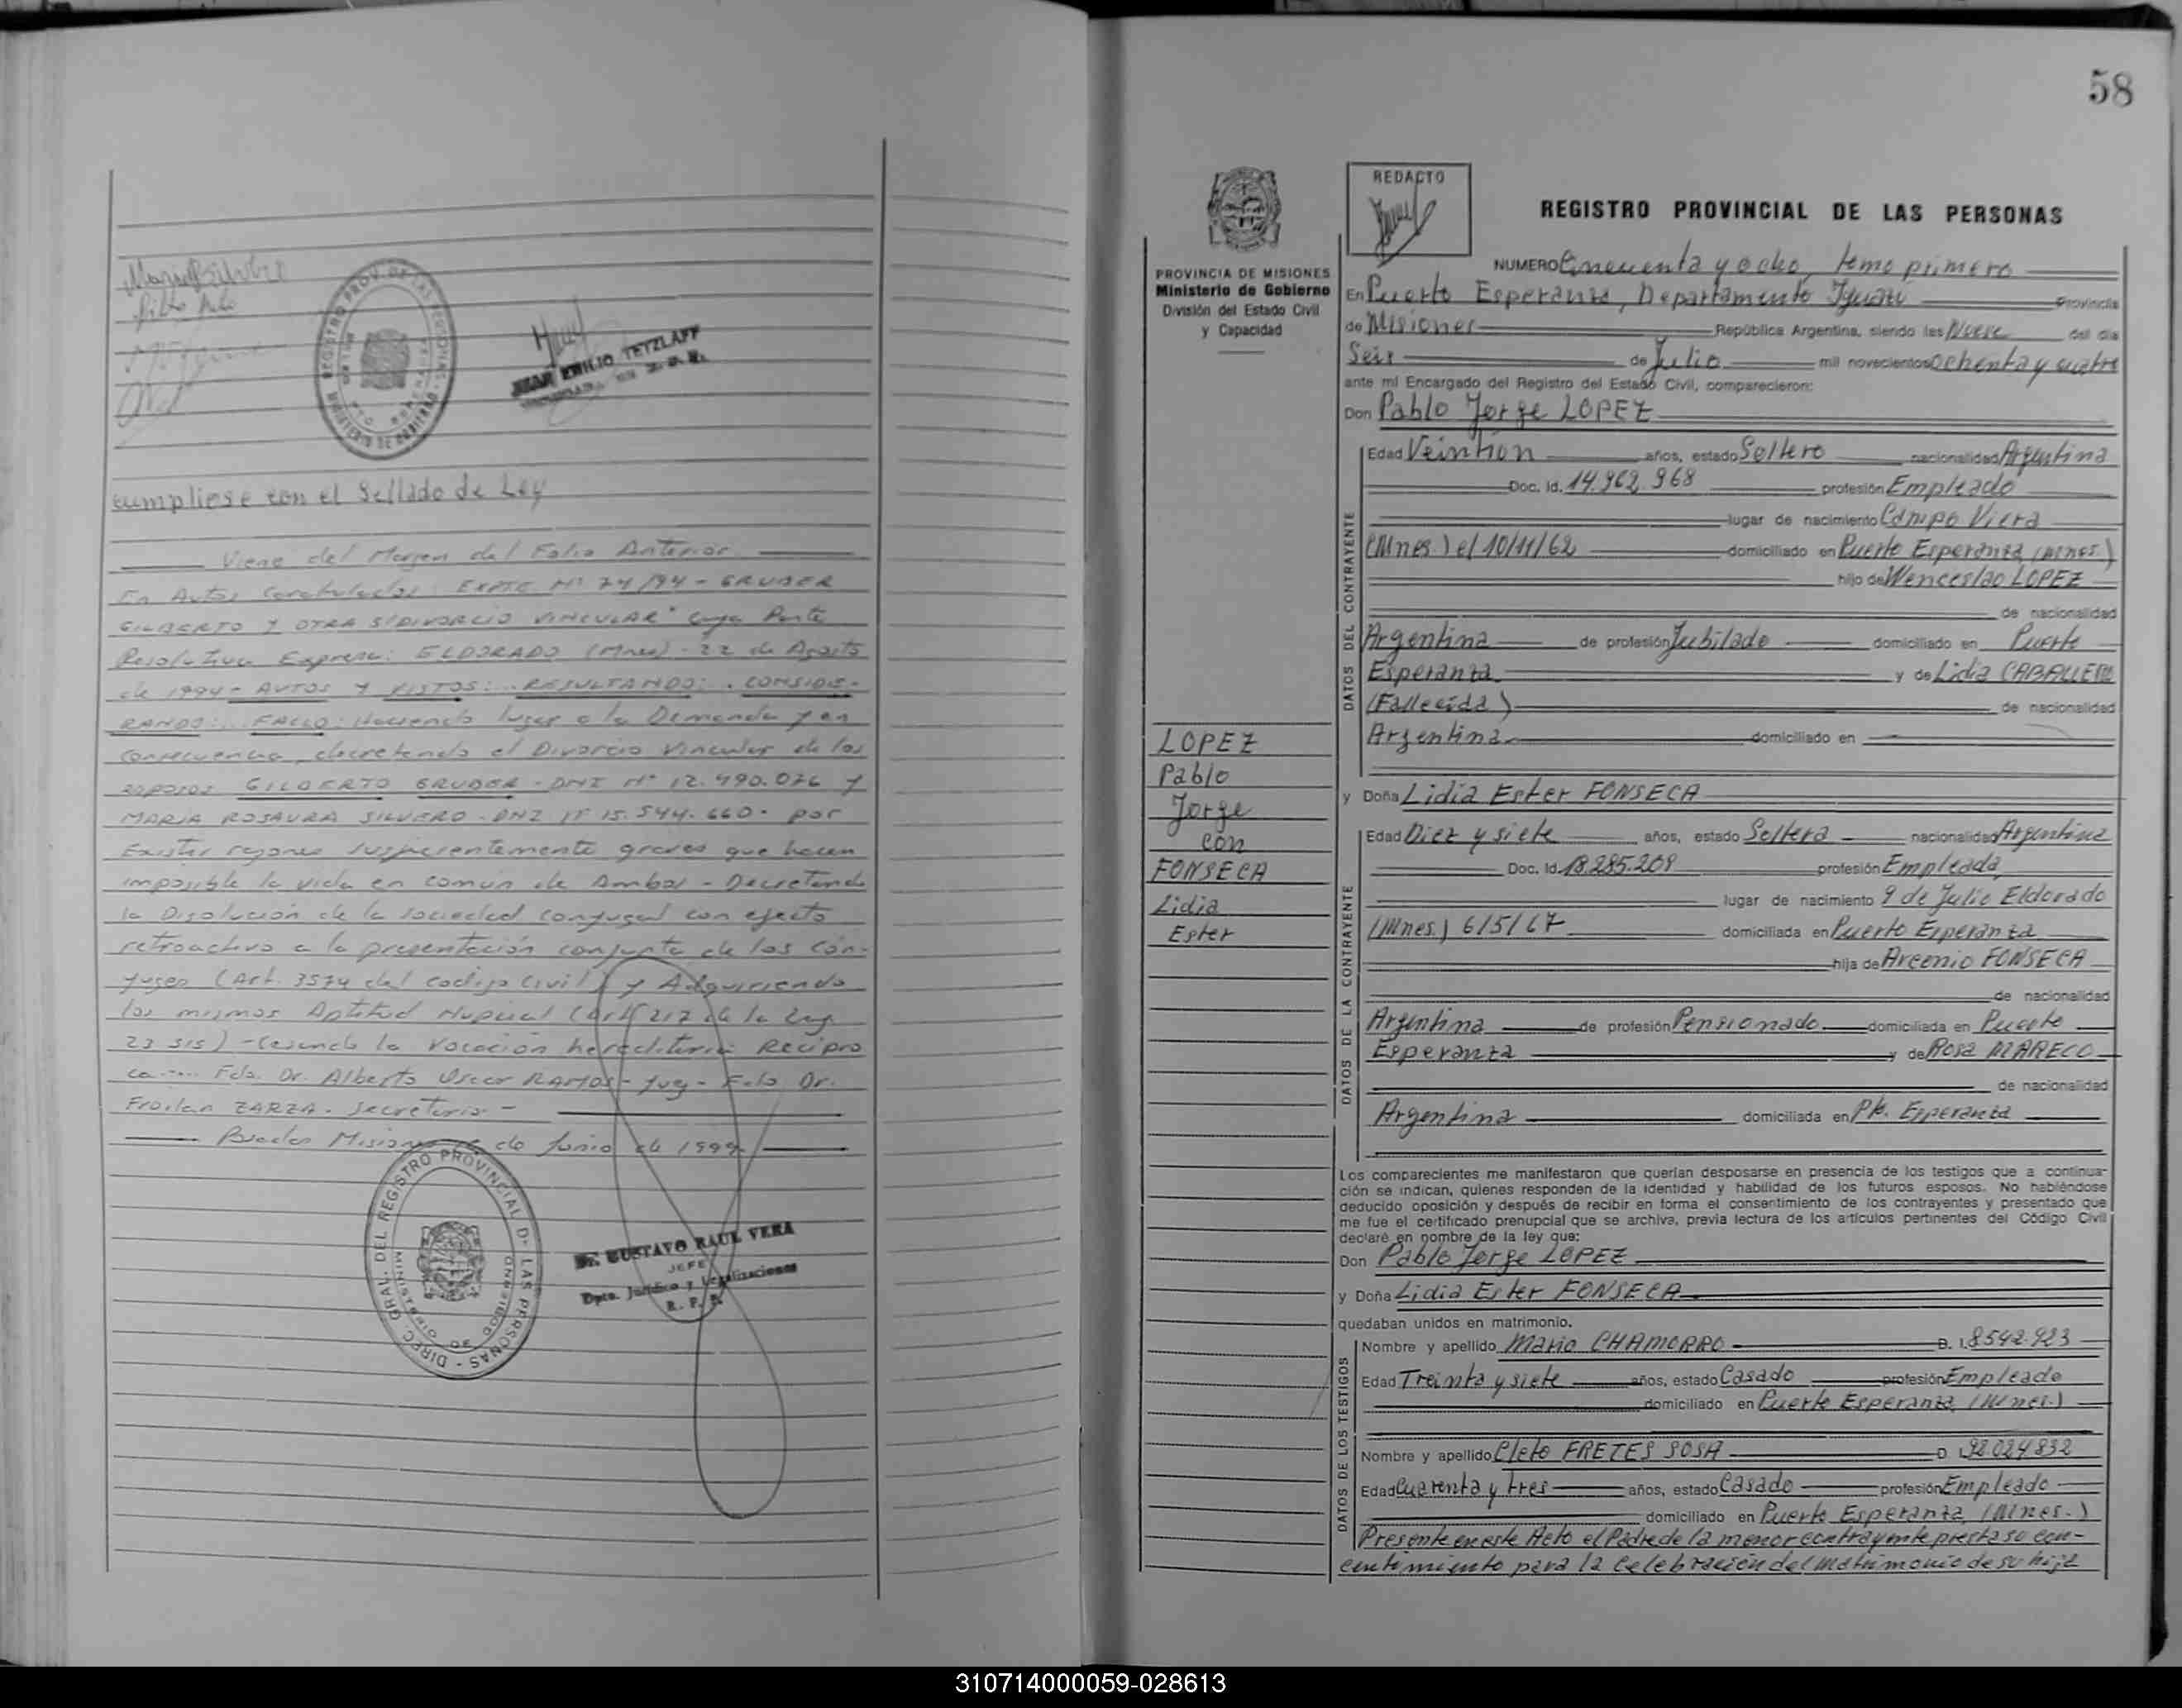 JUAN EMILIO TETZLAFF
cumpliose con el Sellado de Ley
Viene del Margen del Folio Anterior
En Autos Caratulados: EXPTE. Nº 74/94 - GRUBER
GILBERTO Y OTRA S/DIVORCIO VINCULAR" cuya Parte
Resolutiva Expresa: ELDORADO (Mnes) - 22 de Agosto
de 1994 - AUTOS Y VISTOS: .. RESULTANDO: . CONSIDE-
RANDO: .. FALLO: Haciendo lugar a la Demanda y en
consecuencia, decretando el Divorcio Vincular de los
esposos GILBERTO GRUBER - DNI Nº 12.490.076 y
MARIA ROSAURA SILVERO - DNI Nº 15.544.660 - por
Existir razones suficientemente graves que hacen
imposible la vida en común de Ambos - Decretando
la Disolución de la sociedad conyugal con efecto
retroactivo a la presentación conjunta de los cón-
yuges (Art. 3574 del codigo Civil) y Adquiriendo
los mismos Aptitud Nupcial (Art. 217 de la Ley
23 515) - Cesando la Vocación hereditaria Recipro
ca .... Fdo. Dr. Alberto Oscar RAMOS - Juez - Fdo Dr.
Froilan ZARZA - Secretario -
Posadas Misiones de Junio de 1999
DIREC. GRAL. DEL REGISTRO PROVINCIAL DE LAS PERSONAS
Dr. GUSTAVO RAUL VERA
JEFE
Dpto. Jurídico y Legalizaciones
R. P. P.
58
PROVINCIA DE MISIONES
Ministerio de Gobierno
División del Estado Civil
y Capacidad
REDACTO
REGISTRO PROVINCIAL DE LAS PERSONAS
NUMERO Cincuenta y ocho, tomo primero
En Puerto Esperanza, Departamento Iguazú Provincia
de Misiones República Argentina, siendo las Nueve del día
Seis de Julio mil novecientos ochenta y cuatro
ante mí Encargado del Registro del Estado Civil, comparecieron:
Don Pablo Jorge LOPEZ
DATOS DEL CONTRAYENTE
Edad Veintiun años, estado Soltero nacionalidad Argentina
Doc. Id. 14.962.968 profesión Empleado
lugar de nacimiento Campo Viera
(Mnes.) el 10/11/62 domiciliado en Puerto Esperanza (Mnes.)
hijo de Wenceslao LOPEZ
de nacionalidad
Argentina de profesión Jubilado domiciliado en Puerto
Esperanza y de Lidia CABALLERO
(Fallecida) de nacionalidad
Argentina domiciliado en
LOPEZ
Pablo
Jorge
con
FONSECA
Lidia
Ester
y Doña Lidia Ester FONSECA
DATOS DE LA CONTRAYENTE
Edad Diez y siete años, estado Soltera nacionalidad Argentina
Doc. Id. 18.285.209 profesión Empleada
lugar de nacimiento 9 de Julio Eldorado
(Mnes.) 6/5/67 domiciliada en Puerto Esperanza
hija de Arcenio FONSECA
de nacionalidad
Argentina de profesión Pensionado domiciliada en Puerto
Esperanza y de Rosa MARECO
de nacionalidad
Argentina domiciliada en Pto. Esperanza
Los comparecientes me manifestaron que querían desposarse en presencia de los testigos que a continua-
ción se indican, quienes responden de la identidad y habilidad de los futuros esposos. No habiéndose
deducido oposición y después de recibir en forma el consentimiento de los contrayentes y presentado que
me fue el certificado prenupcial que se archiva, previa lectura de los artículos pertinentes del Código Civil
declaré en nombre de la ley que:
Don Pablo Jorge LOPEZ
y Doña Lidia Ester FONSECA
quedaban unidos en matrimonio.
DATOS DE LOS TESTIGOS
Nombre y apellido Mario CHAMORRO D. I. 8542.923
Edad Treinta y siete años, estado Casado profesión Empleado
domiciliado en Puerto Esperanza (Mnes.)
Nombre y apellido Cleto FRETES SOSA D. I. 92024832
Edad Cuarenta y tres años, estado Casado profesión Empleado
domiciliado en Puerto Esperanza (Mnes.)
Presente en este Acto el Padre de la menor contrayente presta su con-
centimiento para la Celebración del matrimonio de su hija
310714000059-028613